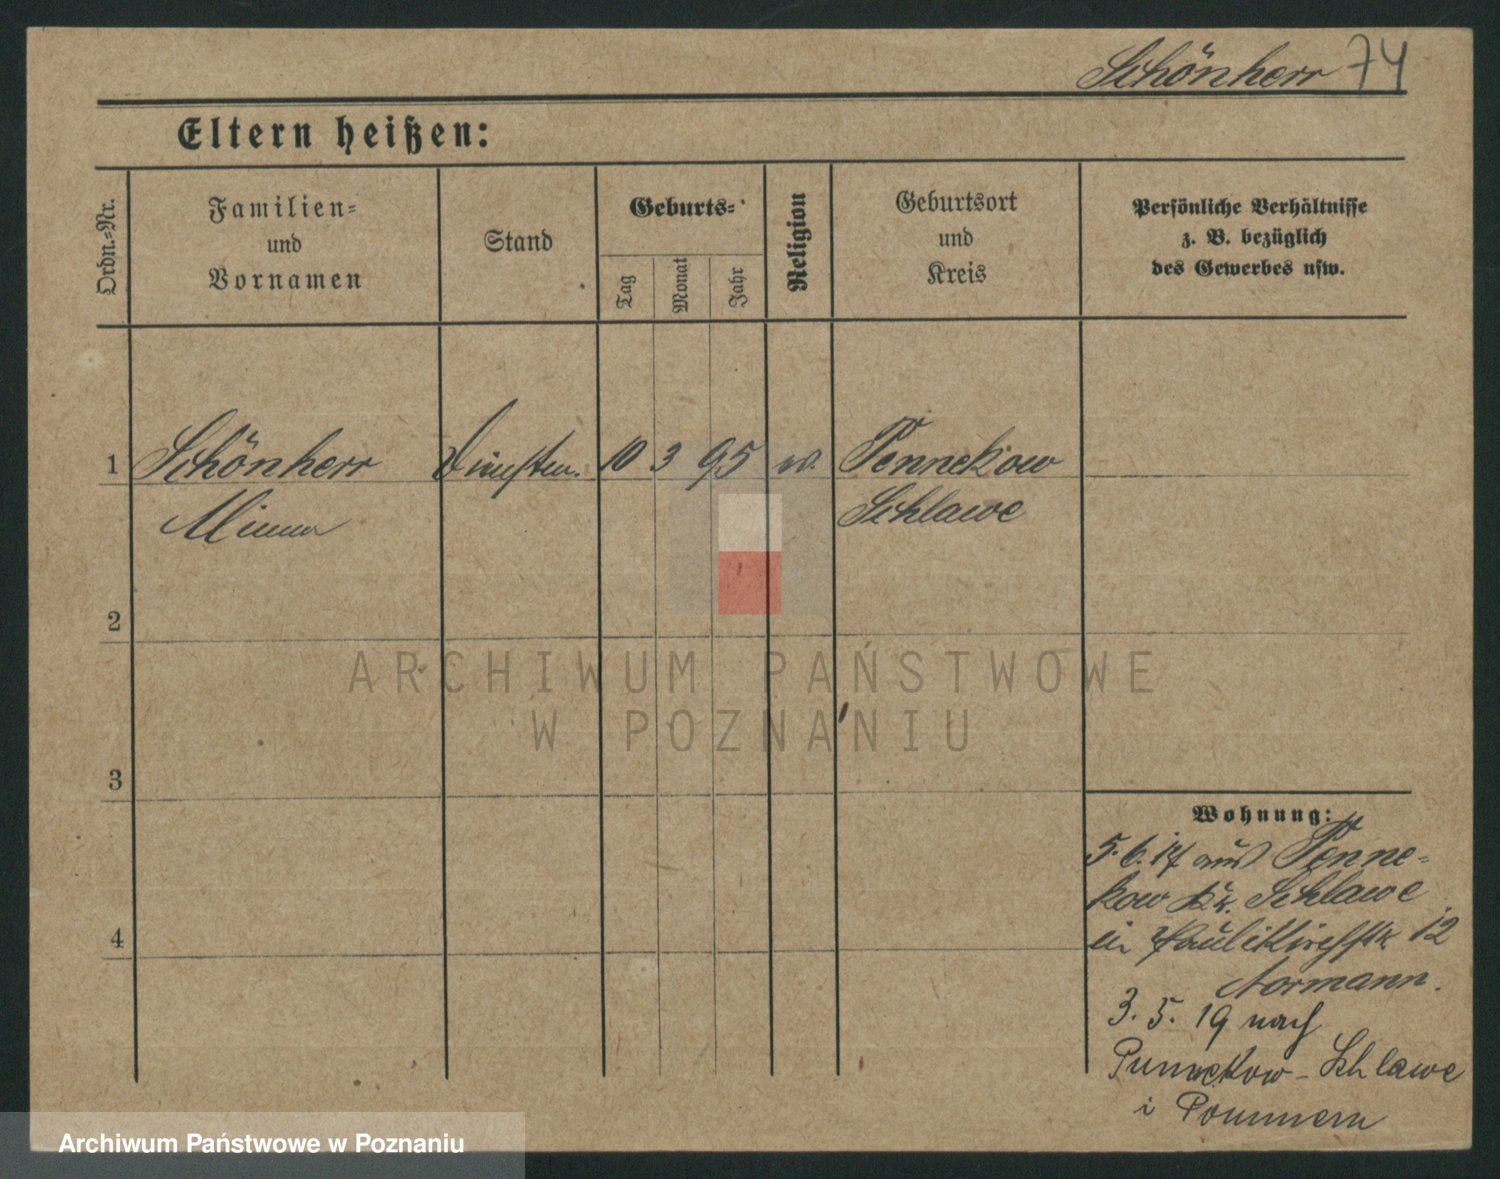 Schönherr 74
Eltern heißen:
Ordn.=Nr.
Familien=
und
Vornamen
Stand
Geburts=
Tag
Monat
Jahr
Religion
Geburtsort
und
Kreis
Persönliche Verhältnisse
z. B. bezüglich
des Gewerbes usw.
1 Schönherr 10 3 95 Pennekow
Minna Schlawe
2
3
4
Wohnung:
5.6.17 aus Penne=
kow Kr. Schlawe
in Paulikirchstr 12
Normann.
3. 5. 19 nach
Pennekow - Schlawe
i Pommern
ARCHIWUM PAŃSTWOWE
W POZNANIU
Archiwum Państwowe w Poznaniu